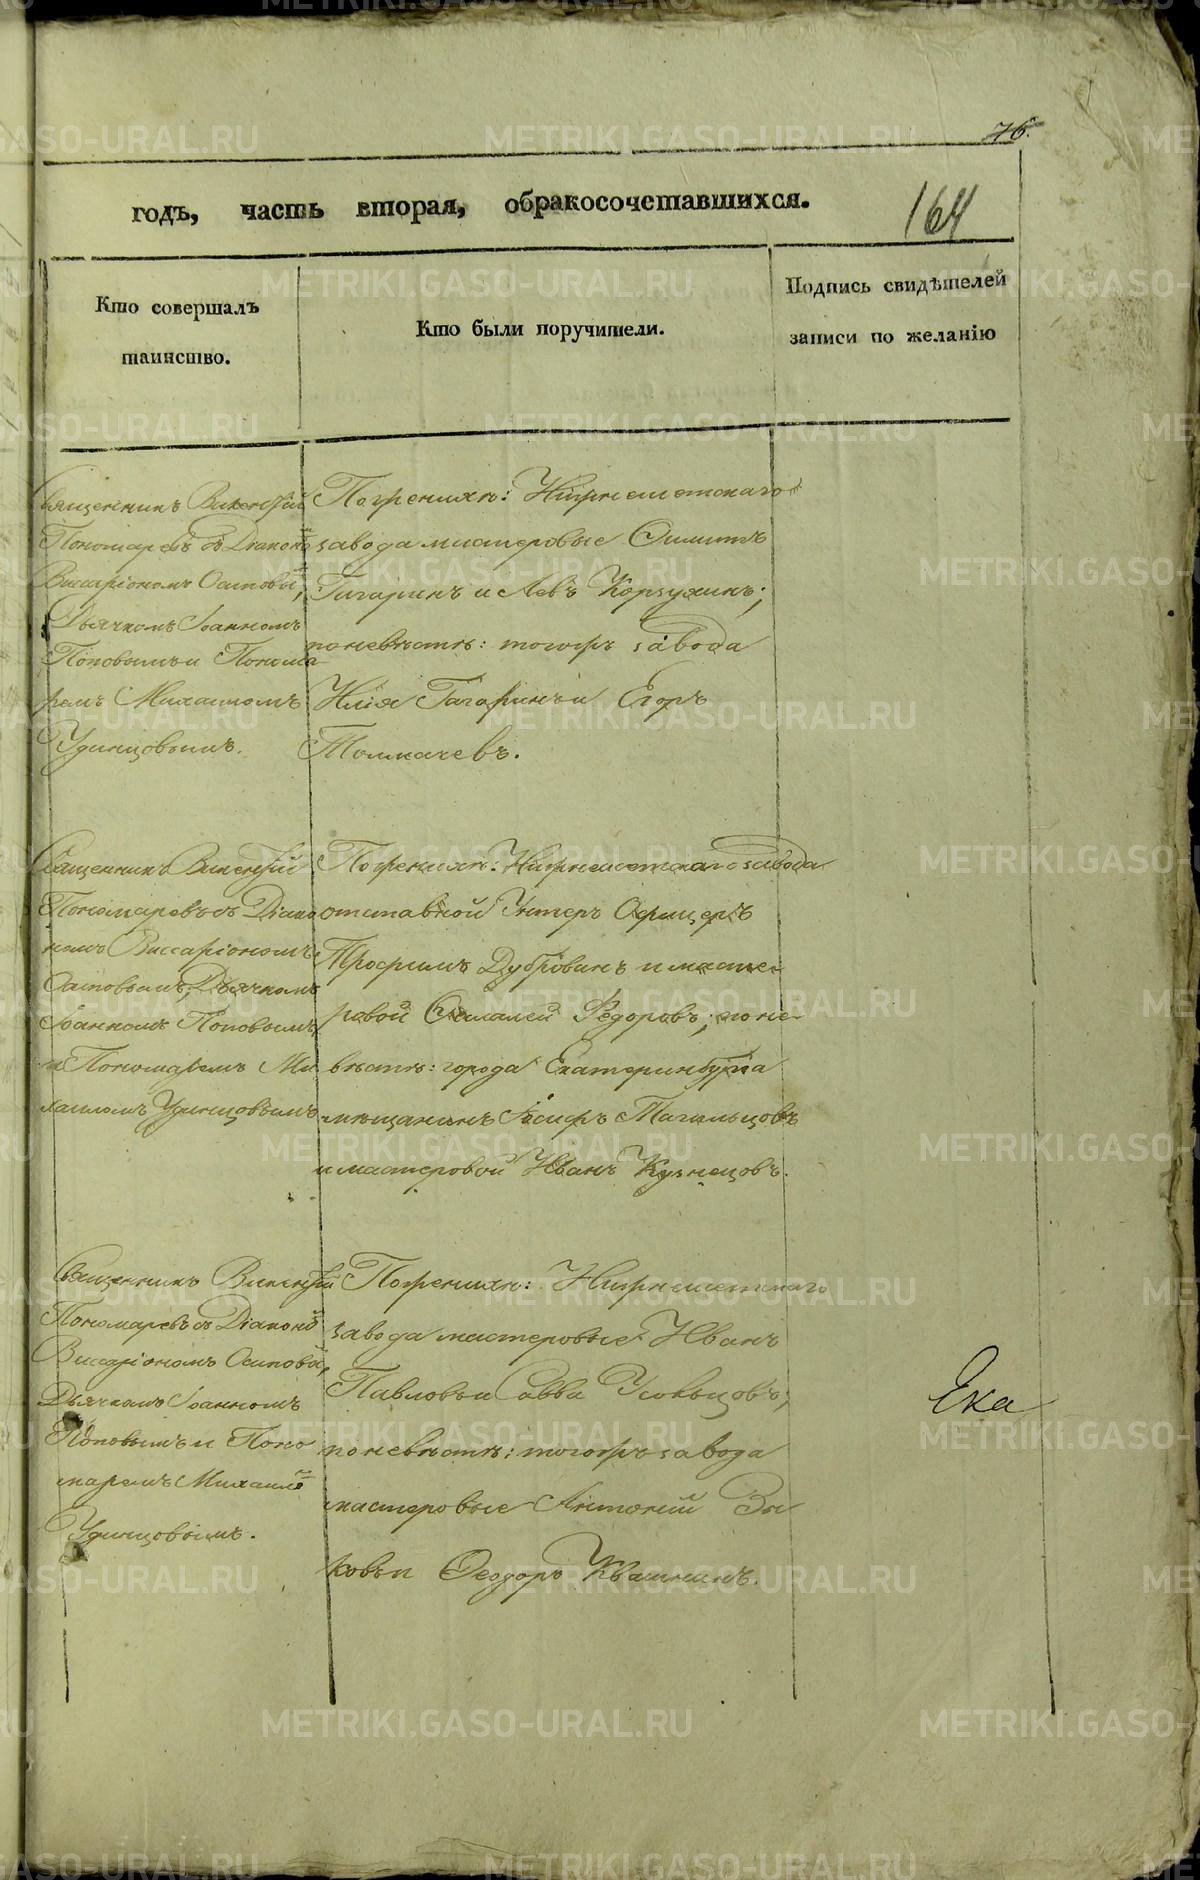 76.
годъ, часть вторая, обракосочетавшихся.
164
Кто совершалъ
таинство.
Кто были поручители.
Подпись свидѣтелей
записи по желанію
Священникъ Викентій
Пономаревъ съ Діакономъ
Виссаріономъ Осиповымъ,
Дьячкомъ Іоанномъ
Поповымъ и Понома
ремъ Михаиломъ
Удинцовымъ.
По женихѣ: Нижнеисетскаго
завода мастеровые Филиппъ
Гагаринъ и Левъ Корзухинъ;
по невѣстѣ: тогожъ завода
Илія Гагаринъ и Егоръ
Толмачевъ.
Священникъ Викентій
Пономаревъ съ Діако
номъ Виссаріономъ
Осиповымъ, Дьячкомъ
Іоанномъ Поповымъ,
и Пономаремъ Ми
хаиломъ Удинцовымъ
По женихѣ: Нижнеисетскаго завода
отставной Унтеръ Офицеръ
Трофимъ Дубровинъ и масте-
ровой Федоровъ; по не-
вѣстѣ: города Екатеринбурга
мѣщанинъ Іосифъ Тагильцовъ
и мастеровой Иванъ Кузнецовъ.
Священникъ Викентій
Пономаревъ съ Діакономъ
Виссаріономъ Осиповымъ,
Дьячкомъ Іоанномъ
Поповымъ и Поно
маремъ Михаиломъ
Удинцовымъ.
По женихѣ: Нижнеисетскаго
завода мастеровые Иванъ
Павловъ и Савва Усольцовъ;
по невѣстѣ: тогожъ завода
мастеровые Антоній Зы
ковъ и Феодоръ Квашнинъ.
Ека